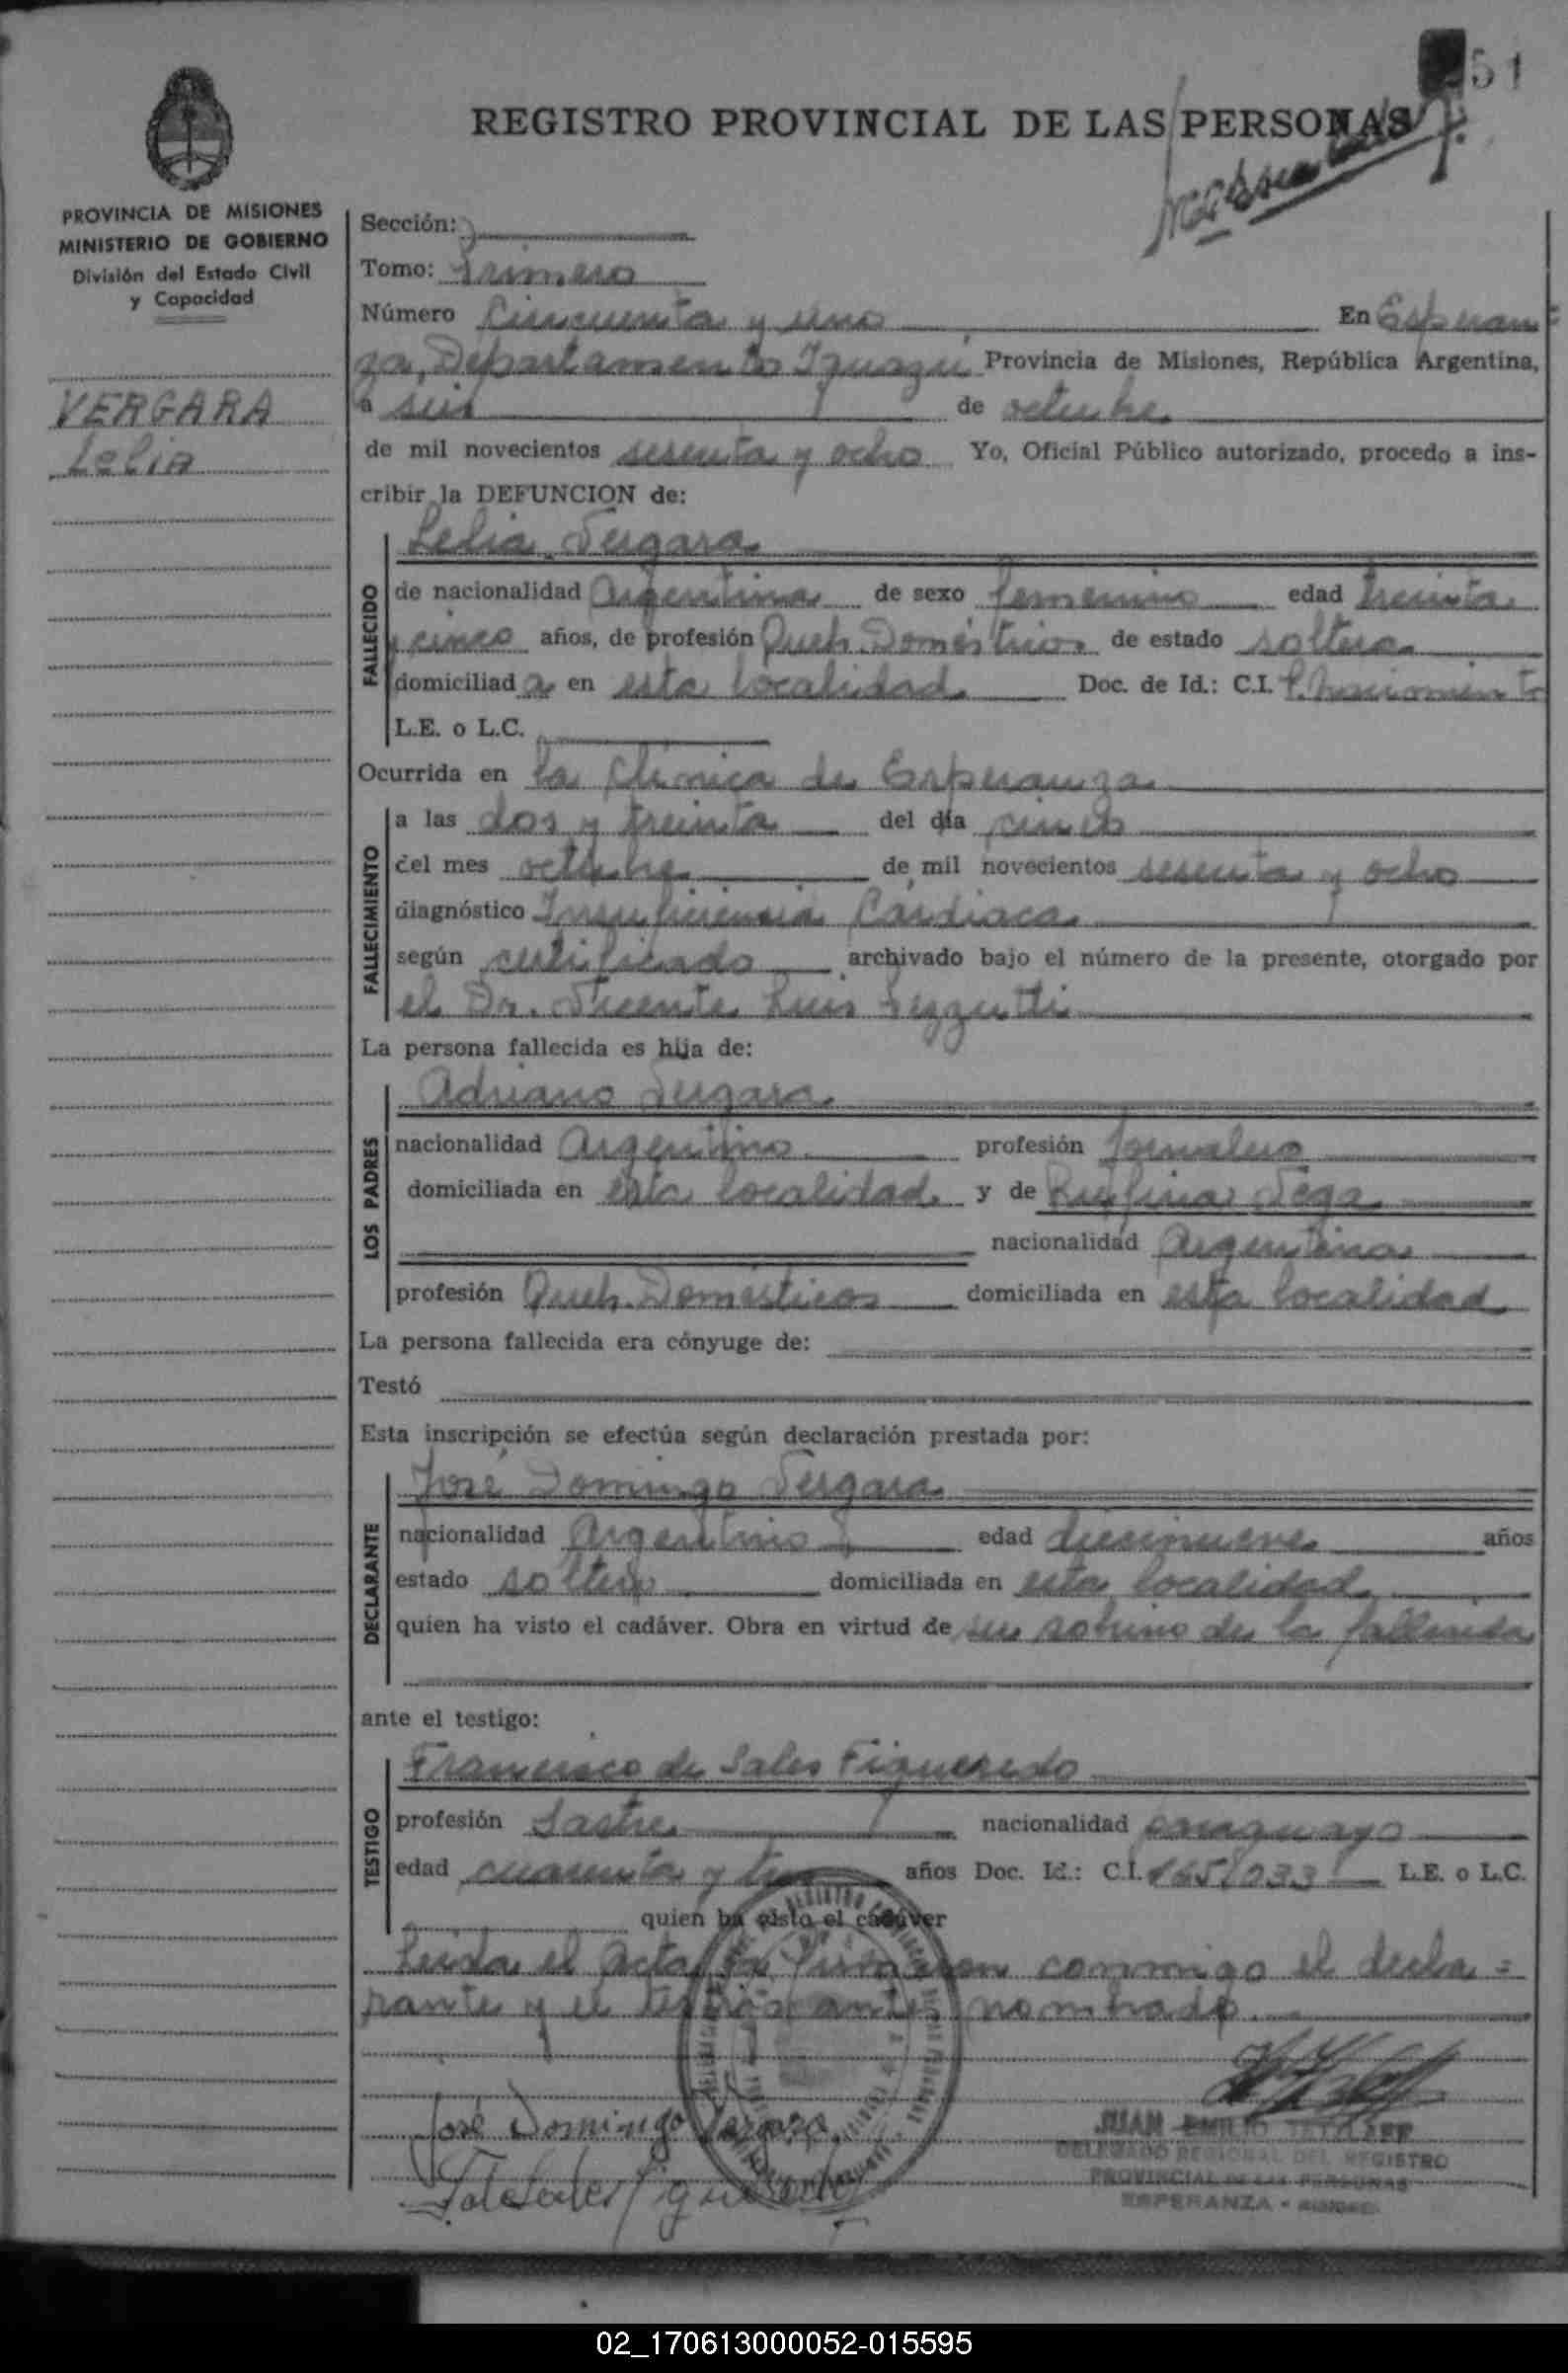 51
REGISTRO PROVINCIAL DE LAS PERSONAS
PROVINCIA DE MISIONES
MINISTERIO DE GOBIERNO
División del Estado Civil
y Capacidad
VERGARA
Lelia
Sección:
Tomo: Primero
Número Cincuenta y uno En Esperan=
za, Departamento Iguazú Provincia de Misiones, República Argentina,
a seis de octubre
de mil novecientos sesenta y ocho Yo, Oficial Público autorizado, procedo a ins-
cribir la DEFUNCION de:
FALLECIDO
Lelia Vergara
de nacionalidad Argentina de sexo femenino edad treinta
y cinco años, de profesión Queh. Domésticos de estado soltera
domiciliada en esta localidad Doc. de Id.: C.I. P. Nacimiento
L.E. o L.C.
Ocurrida en la Clinica de Esperanza
FALLECIMIENTO
a las dos y treinta del día cinco
del mes octubre de mil novecientos sesenta y ocho
diagnóstico Insuficiencia Cardiaca
según certificado archivado bajo el número de la presente, otorgado por
el Dr. Vicente Luis
La persona fallecida es hija de:
LOS PADRES
Adriano Vergara
nacionalidad Argentino profesión Jornalero
domiciliada en esta localidad y de Rufina Vega
nacionalidad Argentina
profesión Queh. Domésticos domiciliada en esta localidad
La persona fallecida era cónyuge de:
Testó
Esta inscripción se efectúa según declaración prestada por:
DECLARANTE
José Domingo Vergara
nacionalidad Argentino edad diecinueve años
estado soltero domiciliada en esta localidad
quien ha visto el cadáver. Obra en virtud de ser sobrino de la fallecida
ante el testigo:
TESTIGO
Francisco de Sales Figueredo
profesión Sastre nacionalidad paraguayo
edad cuarenta y tres años Doc. Id.: C.I. L.E. o L.C.
quien ha visto el cadáver
Leida el acta la firmaron conmigo el decla=
rante y el testigo antes nombrado.
José Domingo Vergara
JUAN EMILIO
DELEGADO REGIONAL DEL REGISTRO
PROVINCIAL DE LAS PERSONAS
ESPERANZA - MISIONES
02_170613000052-015595